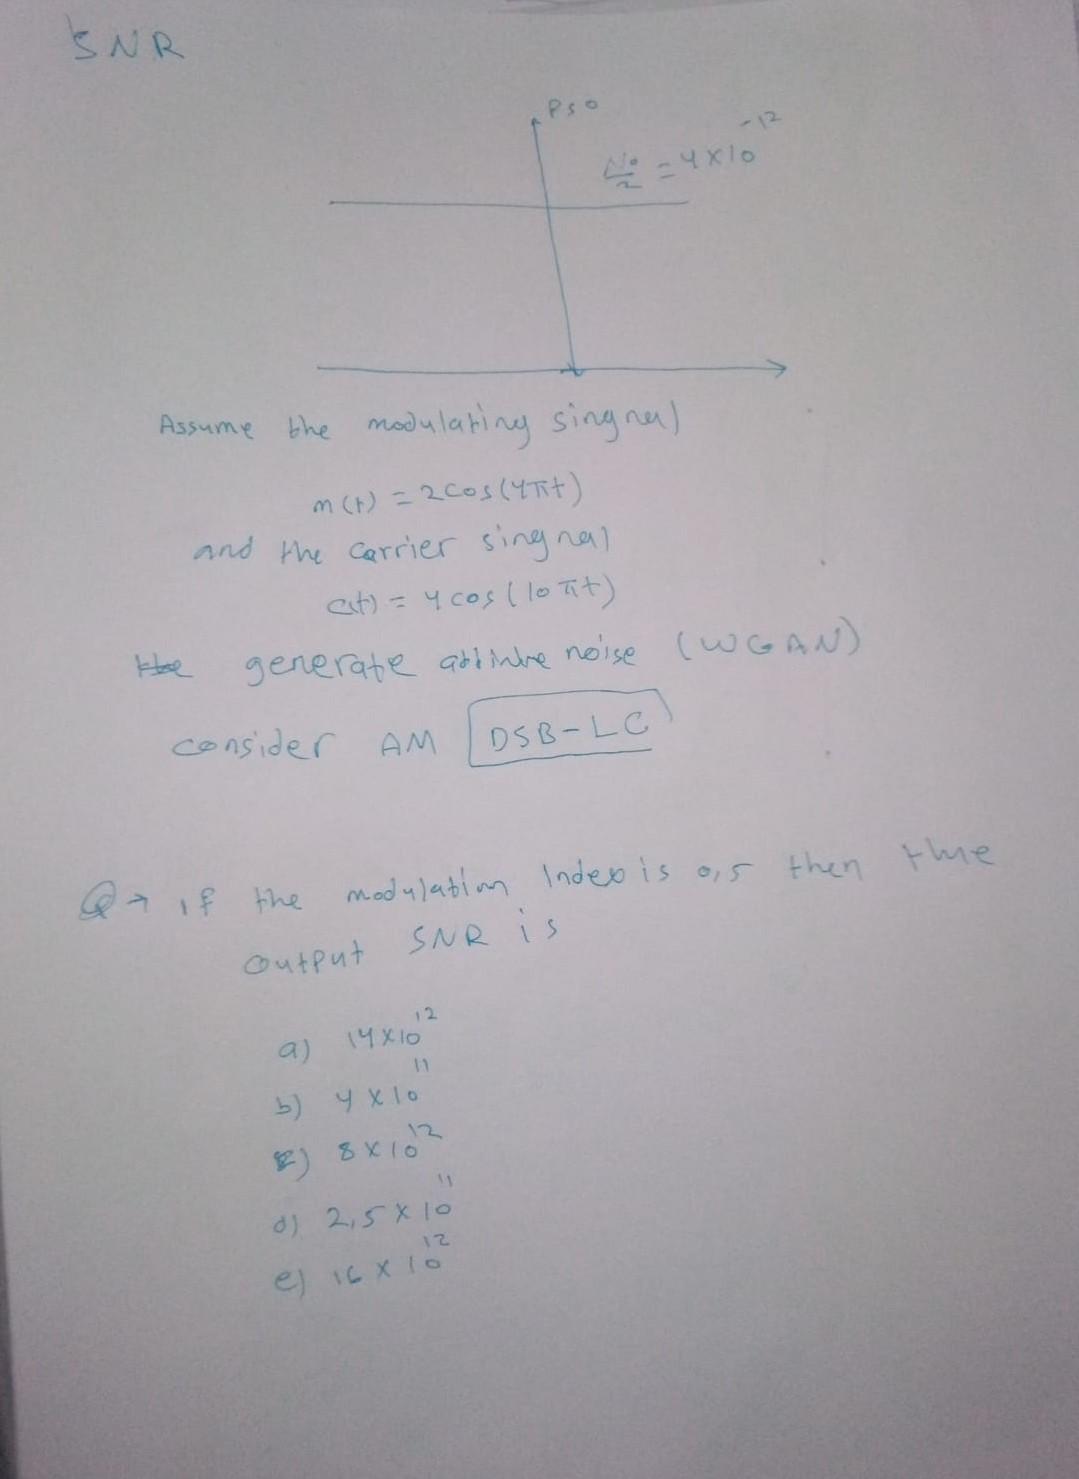 SNR
Pso
N₀/2 = 4×10⁻¹²
Assume the modulating singnal
m(t) = 2cos(4πt)
and the carrier singnal
c(t) = 4cos(10πt)
generate noise (WGAN)
consider AM DSB-LC
Q→ if the modulation Index is 0,5 then the
output SNR is
a) 14×10¹²
b) 4×10¹¹
c) 8×10¹²
d) 2,5×10¹¹
e) 16×10¹²